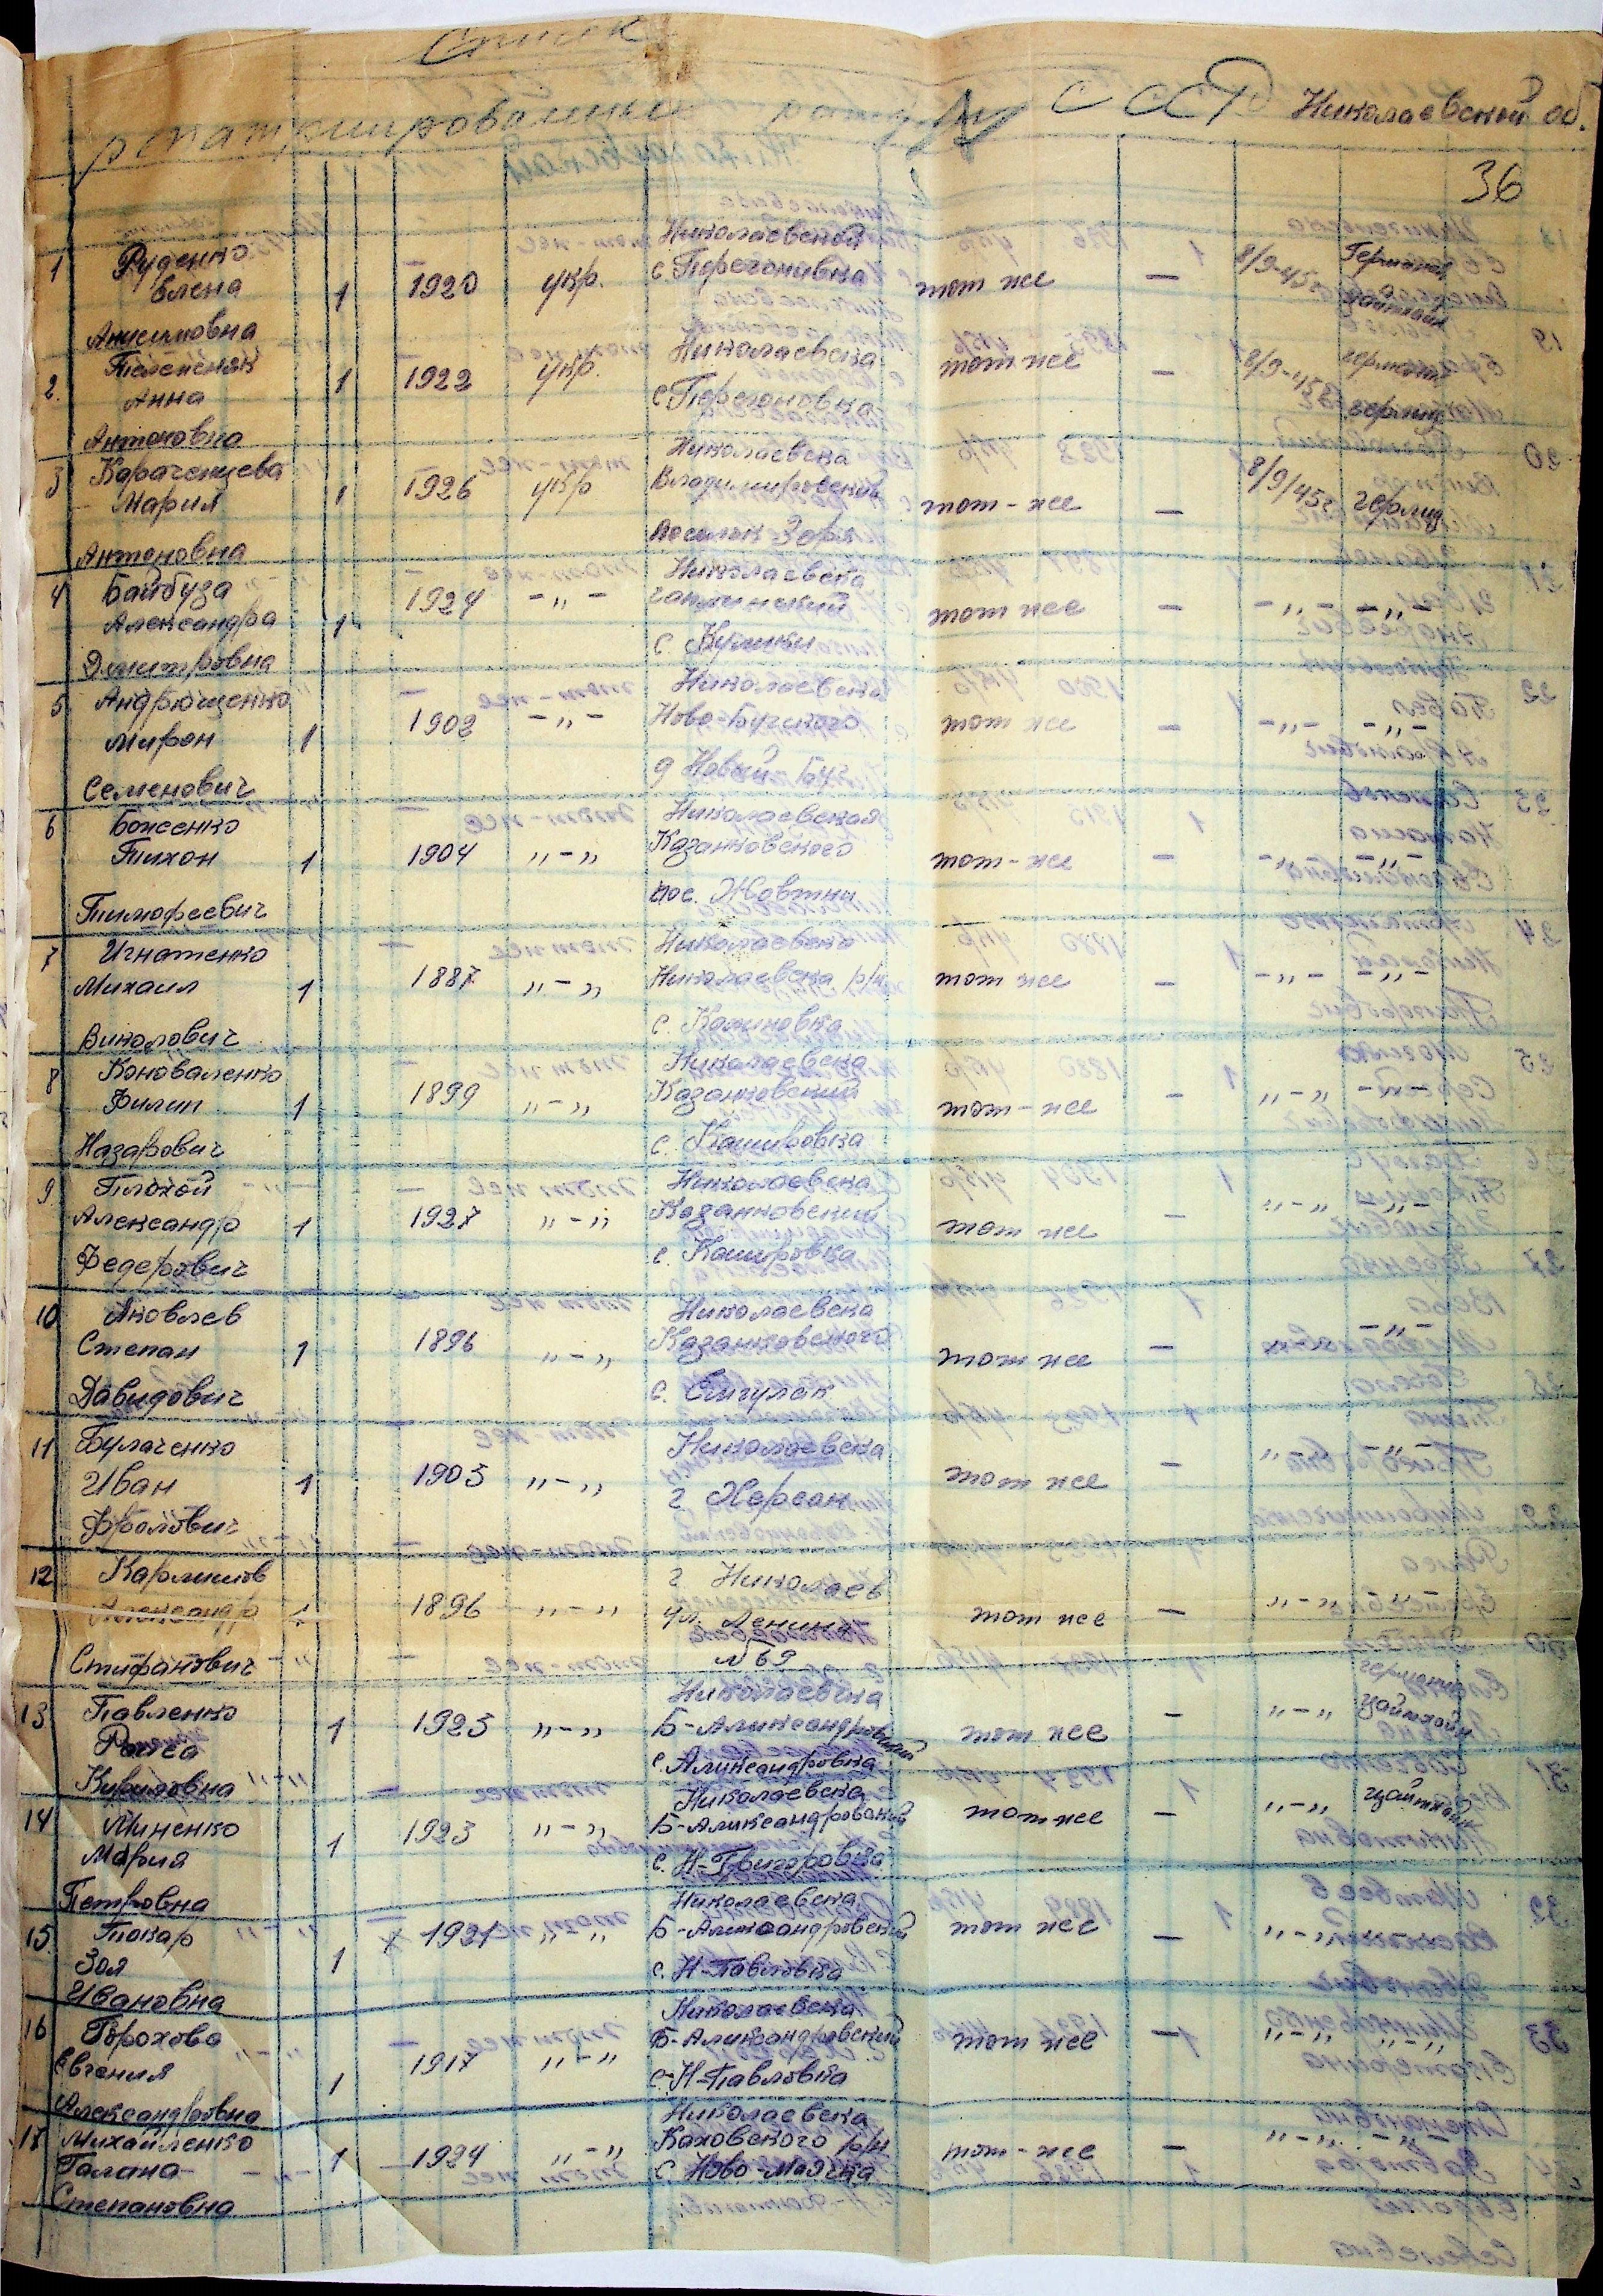 Список
репатриированных граждан СССР Николаевской об.
36
1 Руденко Елена Анисимовна 1 1920 укр. Николаевской с. Перегоновка тот же — 8/9-45г Германия
2. Анна Антоновна 1 1922 укр. Николаевска с Перегоновка тот же — 8/9-45г германия герлиц
3 Караченцева Мария Антоновна 1 1926 укр Николаевска Владимировский Посилок Зоря тот-же — 8/9/45г герлиц
4 Байбуза Александра Дмитровна 1 1924 -„- Николаевска с. Кулики тот же — -„- -„-
5 Андрющенко Мирон Семенович 1 1902 -„- Николаевска Ново-Бугского д Новый Буг тот же — -„- -„-
6 Боженко Тихон Тимофеевич 1 1904 „-„ Николаевская Казанковского пос. Жовтни тот-же — -„- -„-
7 Игнатенко Михаил 1 1887 „-„ Николаевска Николаевска р/н с. Калиновка тот же — -„- -„-
8 Коноваленко Филип Назарович 1 1899 „-„ Николаевска Казанковский с. Кашировка тот-же — „-„
9 Плохой Александр Федерович 1 1927 „-„ Николаевска Казанковский с. Кашировка тот же — „-„
10 Яковлев Степан Давидович 1 1896 „-„ Николаевска Казанковского с. тот же — -„-
11 Булаченко Иван Фролович 1 1905 „-„ Николаевска г. Херсон тот же — „
12 Карлинов Александр Стифанович 1 1896 „-„ г Николаев ул. Ленина №69 тот же — „-„
13 Павленко Раиса Кириловна 1 1925 „-„ Николаевска Б-Александровский с. Александровка тот же — „-„ германия цайтхайн
14 Миненко Мария Петровна 1 1923 „-„ Николаевска Б-Александровский с. Н-Григоровка тот же — „-„ цайтхайн
15. Токар Зоя Ивановна 1 х 1921 „-„ Николаевска Б-Александровский с. Н-Павловка тот же — „-„
16 Горохова Евгения Александровна 1 1917 „-„ Николаевска Б-Александровский с. Н-Павловка тот же — „-„ „-„
17 Михайленко Галина Степановна 1 1924 „-„ Николаевска Каховского р/н с. Ново-Маячка тот-же — „-„-„